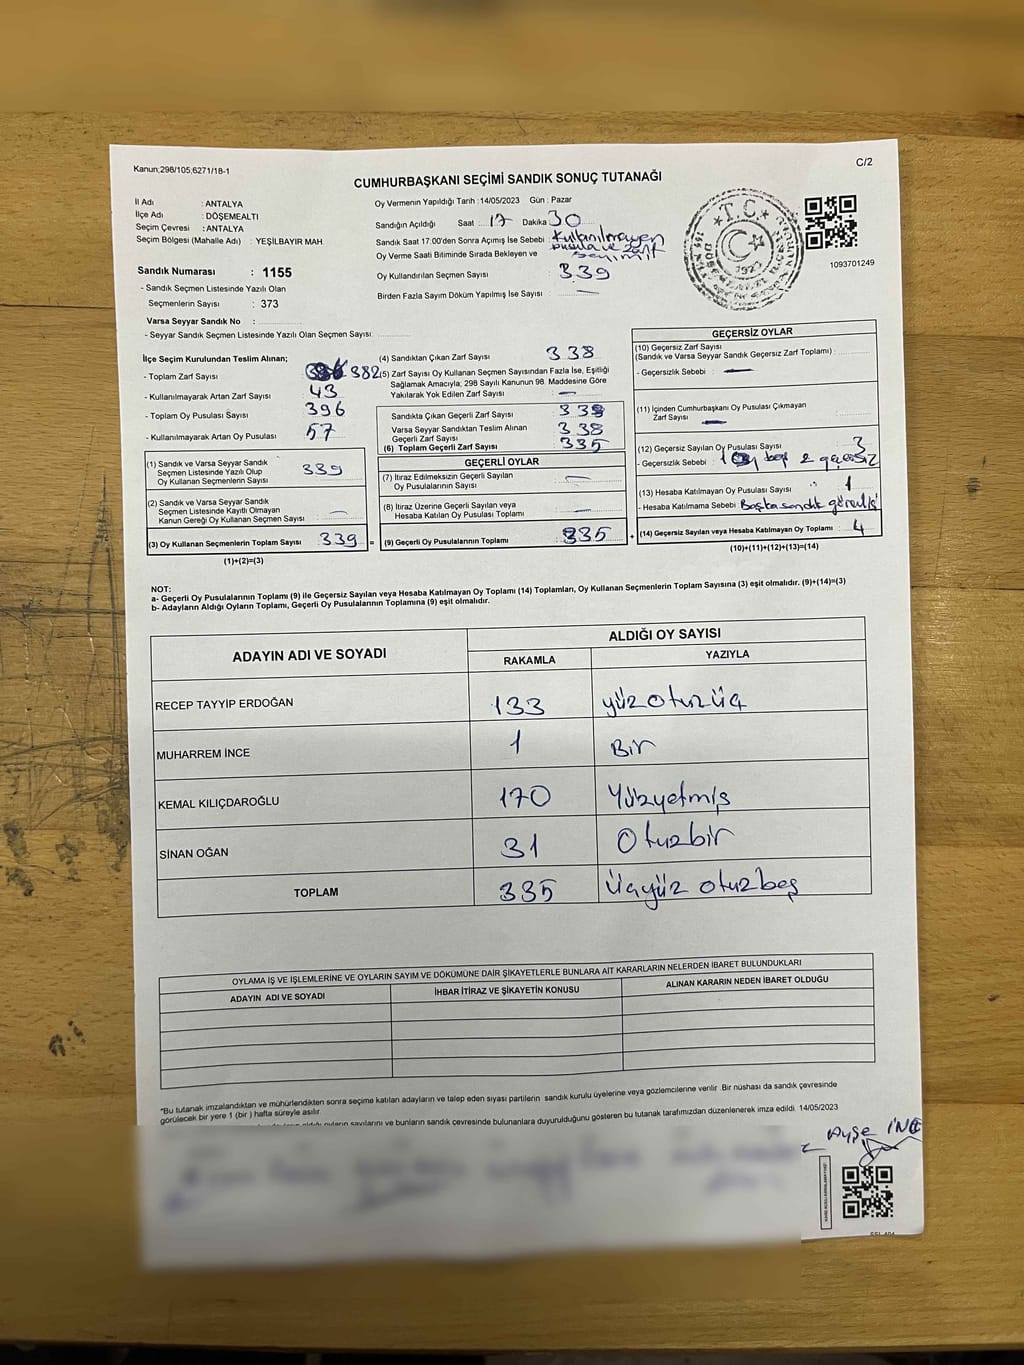 Kanun;298/105;6271/1B-1
C/2
CUMHURBAŞKANI SEÇİMİ SANDIK SONUÇ TUTANAĞI
İl Adı : ANTALYA
İlçe Adı : DÖŞEMEALTI
Seçim Çevresi : ANTALYA
Seçim Bölgesi (Mahalle Adı) : YEŞİLBAYIR MAH.
Sandık Numarası : 1155
- Sandık Seçmen Listesinde Yazılı Olan
Seçmenlerin Sayısı : 373
Varsa Seyyar Sandık No :
- Seyyar Sandık Seçmen Listesinde Yazılı Olan Seçmen Sayısı:
Oy Vermenin Yapıldığı Tarih :14/05/2023 Gün : Pazar
Sandığın Açıldığı Saat : 17 Dakika 30
Sandık Saat 17:00'den Sonra Açımış İse Sebebi : Kullanılmayan
Oy Verme Saati Bitiminde Sırada Bekleyen ve pusula ve zarf
Oy Kullandırılan Seçmen Sayısı : 339
Birden Fazla Sayım Döküm Yapılmış İse Sayısı :
T.C.
1923
1093701249
İlçe Seçim Kurulundan Teslim Alınan;
- Toplam Zarf Sayısı : 382
- Kullanılmayarak Artan Zarf Sayısı : 43
- Toplam Oy Pusulası Sayısı : 396
- Kullanılmayarak Artan Oy Pusulası : 57
(1) Sandık ve Varsa Seyyar Sandık
Seçmen Listesinde Yazılı Olup
Oy Kullanan Seçmenlerin Sayısı 339
(2) Sandık ve Varsa Seyyar Sandık
Seçmen Listesinde Kayıtlı Olmayan
Kanun Gereği Oy Kullanan Seçmen Sayısı
(3) Oy Kullanan Seçmenlerin Toplam Sayısı 339 =
(1)+(2)=(3)
(4) Sandıktan Çıkan Zarf Sayısı 338
(5) Zarf Sayısı Oy Kullanan Seçmen Sayısından Fazla İse, Eşitliği
Sağlamak Amacıyla; 298 Sayılı Kanunun 98. Maddesine Göre
Yakılarak Yok Edilen Zarf Sayısı :
Sandıkta Çıkan Geçerli Zarf Sayısı : 338
Varsa Seyyar Sandıktan Teslim Alınan
Geçerli Zarf Sayısı : 338
(6) Toplam Geçerli Zarf Sayısı : 335
GEÇERLİ OYLAR
(7) İtiraz Edilmeksizin Geçerli Sayılan
Oy Pusulalarının Sayısı
(8) İtiraz Üzerine Geçerli Sayılan veya
Hesaba Katılan Oy Pusulası Toplamı
(9) Geçerli Oy Pusulalarının Toplamı : 335 +
GEÇERSİZ OYLAR
(10) Geçersiz Zarf Sayısı
(Sandık ve Varsa Seyyar Sandık Geçersiz Zarf Toplamı) :
- Geçersizlik Sebebi :
(11) İçinden Cumhurbaşkanı Oy Pusulası Çıkmayan
Zarf Sayısı :
(12) Geçersiz Sayılan Oy Pusulası Sayısı : 3
- Geçersizlik Sebebi : 1 boş 2 geçersiz
(13) Hesaba Katılmayan Oy Pusulası Sayısı : 1
- Hesaba Katılmama Sebebi :
(14) Geçersiz Sayılan veya Hesaba Katılmayan Oy Toplamı : 4
(10)+(11)+(12)+(13)=(14)
NOT:
a- Geçerli Oy Pusulalarının Toplamı (9) ile Geçersiz Sayılan veya Hesaba Katılmayan Oy Toplamı (14) Toplamları, Oy Kullanan Seçmenlerin Toplam Sayısına (3) eşit olmalıdır. (9)+(14)=(3)
b- Adayların Aldığı Oyların Toplamı, Geçerli Oy Pusulalarının Toplamına (9) eşit olmalıdır.
ADAYIN ADI VE SOYADI
ALDIĞI OY SAYISI
RAKAMLA YAZIYLA
RECEP TAYYİP ERDOĞAN 133 yüzotuzüç
MUHARREM İNCE 1 Bir
KEMAL KILIÇDAROĞLU 170 Yüzyetmiş
SİNAN OĞAN 31 Otuzbir
TOPLAM 335 Üçyüz otuzbeş
OYLAMA İŞ VE İŞLEMLERİNE VE OYLARIN SAYIM VE DÖKÜMÜNE DAİR ŞİKAYETLERLE BUNLARA AİT KARARLARIN NELERDEN İBARET BULUNDUKLARI
ADAYIN ADI VE SOYADI İHBAR İTİRAZ VE ŞİKAYETİN KONUSU ALINAN KARARIN NEDEN İBARET OLDUĞU
*Bu tutanak imzalandıktan ve mühürlendikten sonra seçime katılan adayların ve talep eden siyasi partilerin sandık kurulu üyelerine veya gözlemcilerine verilir. Bir nüshası da sandık çevresinde
görülecek bir yere 1 (bir ) hafta süreyle asılır.
oyların sayılarını ve bunların sandık çevresinde bulunanlara duyurulduğunu gösteren bu tutanak tarafımızdan düzenlenerek imza edildi. 14/05/2023
Ayşe İNCE